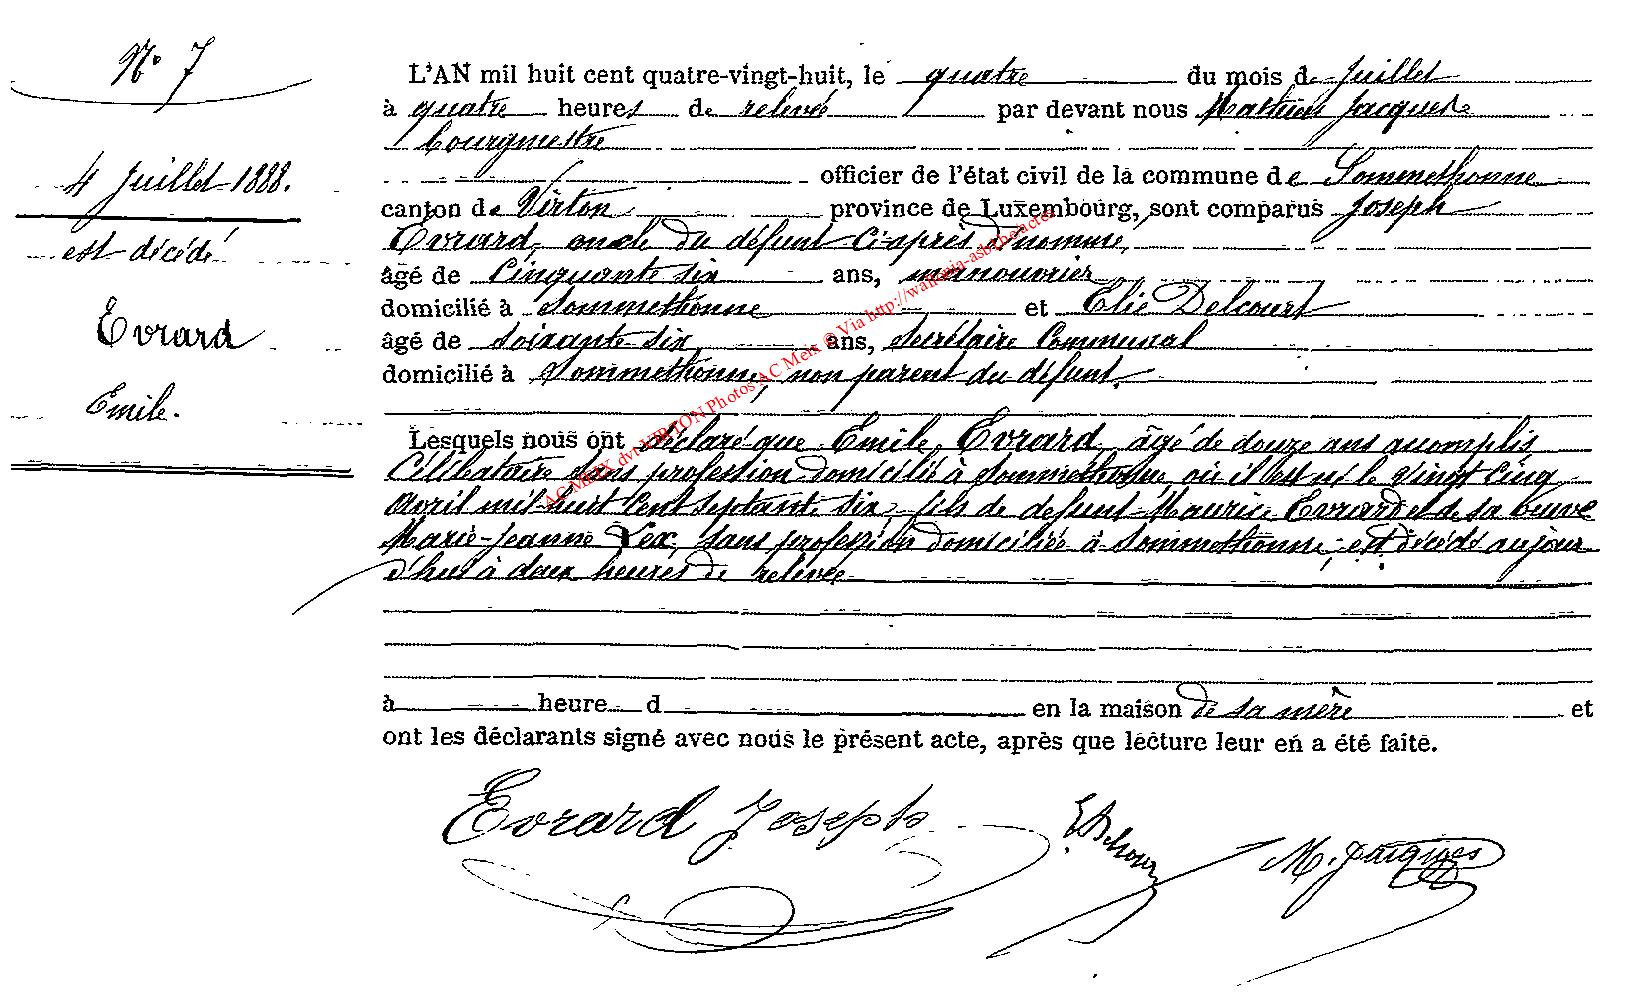 N° 7
4 Juillet 1888.
est décédé
Evrard
Emile.
L'AN mil huit cent quatre-vingt-huit, le quatre du mois de Juillet
à quatre heures de relevée par devant nous Mathieu Jacques
bourgmestre
officier de l'état civil de la commune de Sommethonne
canton de Virton province de Luxembourg, sont comparus Joseph
Evrard, oncle du défunt ci-après dénommé,
âgé de cinquante six ans, manouvrier
domicilié à Sommethonne et Elie Delcourt
âgé de soixante six ans, secrétaire Communal
domicilié à Sommethonne, non parent du défunt.
Lesquels nous ont déclaré que Emile Evrard, âgé de douze ans accomplis,
Célibataire sans profession domicilié à Sommethonne où il est né le vingt cinq
Avril mil huit cent septante six, fils de defunt Maurice Evrard et de sa veuve
Marie-Jeanne Lex, sans profession domiciliée à Sommethonne, est décédé aujour
d'hui à deux heures de relevée
à heure d en la maison de sa mère et
ont les déclarants signé avec nous le présent acte, après que lecture leur en a été faite.
Evrard Joseph E. Delcourt M. Jacques
AC MEIX dvt VIRTON Photos AC Meix © Via http://wallonia-asbl.be/actes